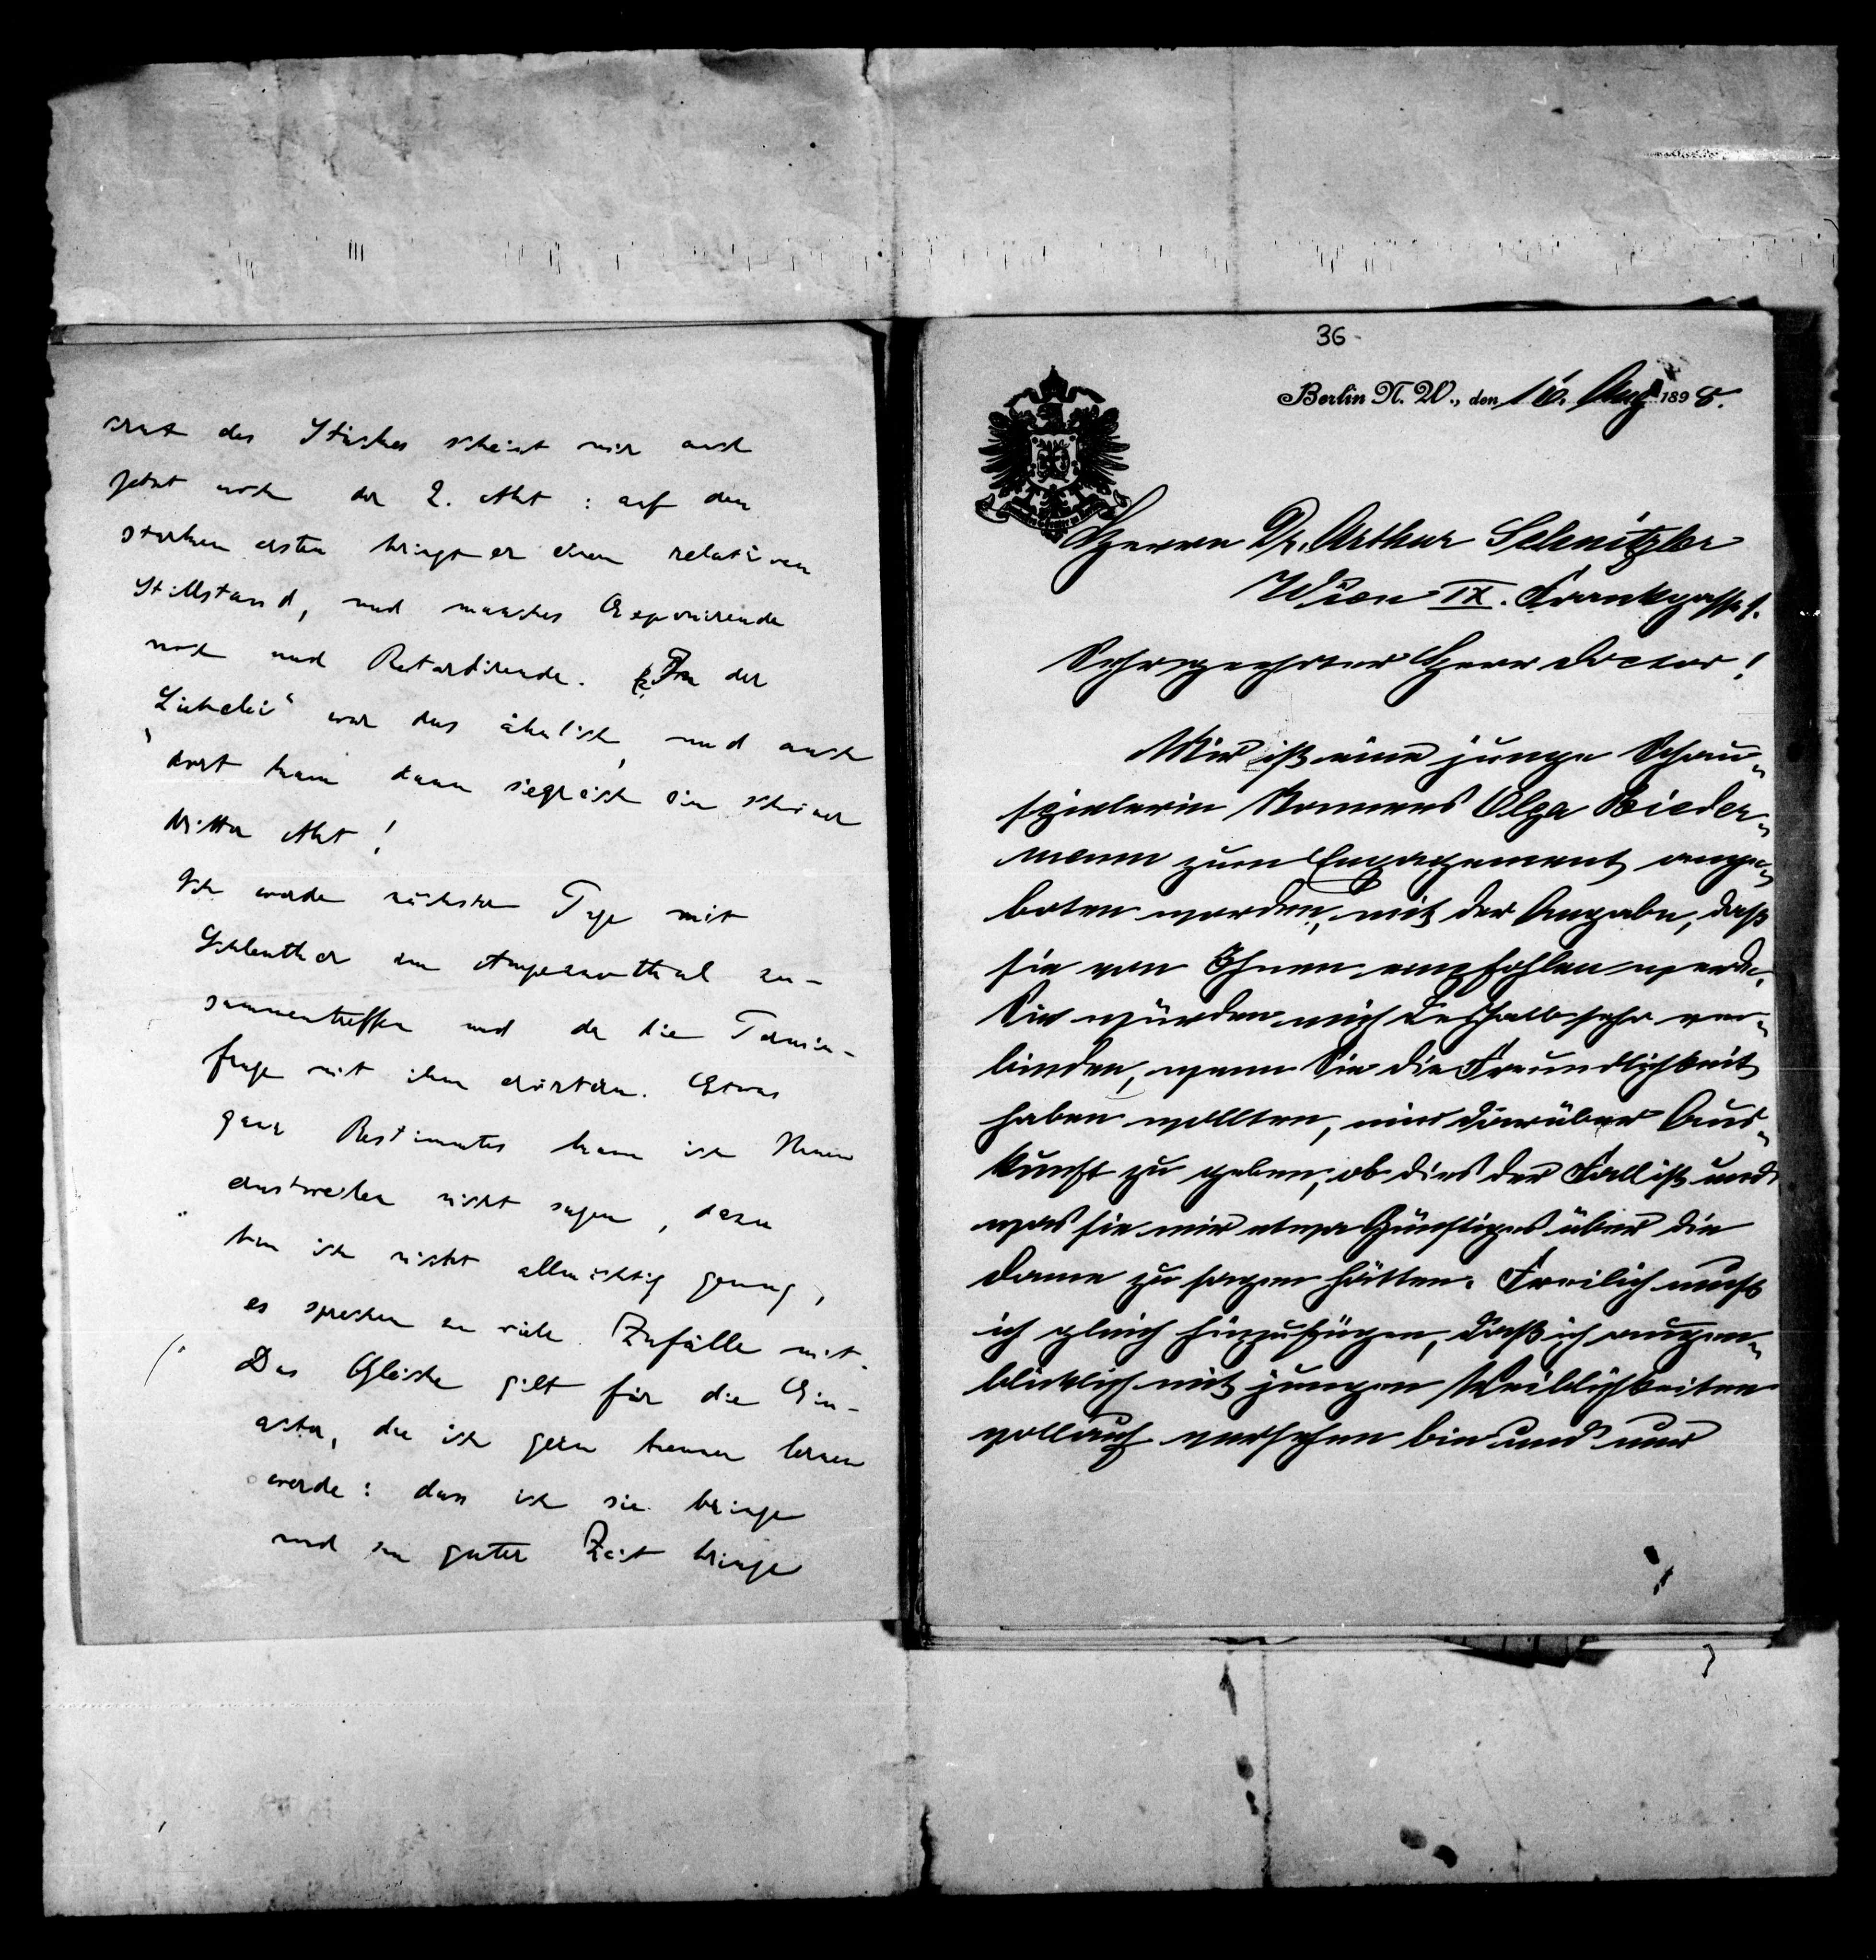 crut des Stückes scheint mir auch
jetzt noch der 2. Akt: auf den
starken ersten bringt er einen relativen
Stillstand, und manches Exponirende
noch und Retardirende. In der
„Liebelei“ war das ähnlich, und auch
dort kam dann siegreich ein schöner
dritter Akt!
Ich werde nächster Tage mit
Schlenther im Ampezzothal zu-
sammentreffen und da die Termin-
frage mit ihm erörtern. Etwas
ganz Bestimmtes kann ich Ihnen
einstweilen nicht sagen, dazu
bin ich nicht allmächtig genug,
es sprechen zu viele Zufälle mit.
Das Gleiche gilt für die Ein-
akter, die ich gern kennen lernen
werde: dass ich sie bringe
und zu guter Zeit bringe
36
Berlin N. W., den 16. Aug 1898.
Herrn Dr. Arthur Schnitzler
Wien IX. Frankgasse 1.
Sehrgeehrter Herr Doctor!
Mir ist eine junge Schau-
spielerin Namens Olga Bieder-
mann zum Engagement ange-
boten worden, mit der Angabe, daß
sie von Ihnen empfohlen werde.
Sie würden mich deshalb sehr ver-
binden, wenn Sie die Freundlichkeit
haben wollten, mir darüber Aus-
kunft zu geben, ob dies der Fall ist und
was sie mir etwa Günstiges über die
Dame zu sagen hätten. Freilich muß
ich gleich hinzufügen, daß ich augen-
blicklich mit jungen Weiblichkeiten
vollauf versehen bin und nur